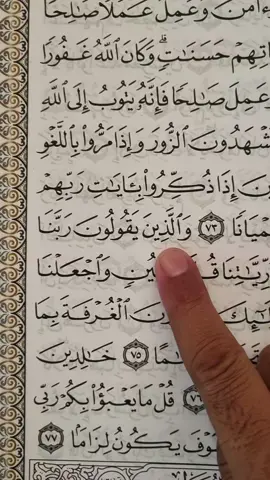 ءَامَنَ وَعَمِلَ عَمَلًا صَٰلِحًا
اتِهِمْ حَسَنَٰتٍ ۗ وَكَانَ ٱللَّهُ غَفُورًا
عَمِلَ صَٰلِحًا فَإِنَّهُۥ يَتُوبُ إِلَى ٱللَّهِ
شْهَدُونَ ٱلزُّورَ وَإِذَا مَرُّوا۟ بِٱللَّغْوِ
نَ إِذَا ذُكِّرُوا۟ بِـَٔايَٰتِ رَبِّهِمْ
مْيَانًا ٧٣ وَٱلَّذِينَ يَقُولُونَ رَبَّنَا
رِّيَّٰتِنَا قُ يُنٍ وَٱجْعَلْنَا
ئِكَ ونَ ٱلْغُرْفَةَ بِمَا
قَّ مًا ٧٥ خَٰلِدِينَ
٧٦ قُلْ مَا يَعْبَؤُا۟ بِكُمْ رَبِّى
وْفَ يَكُونُ لِزَامًۢا ٧٧